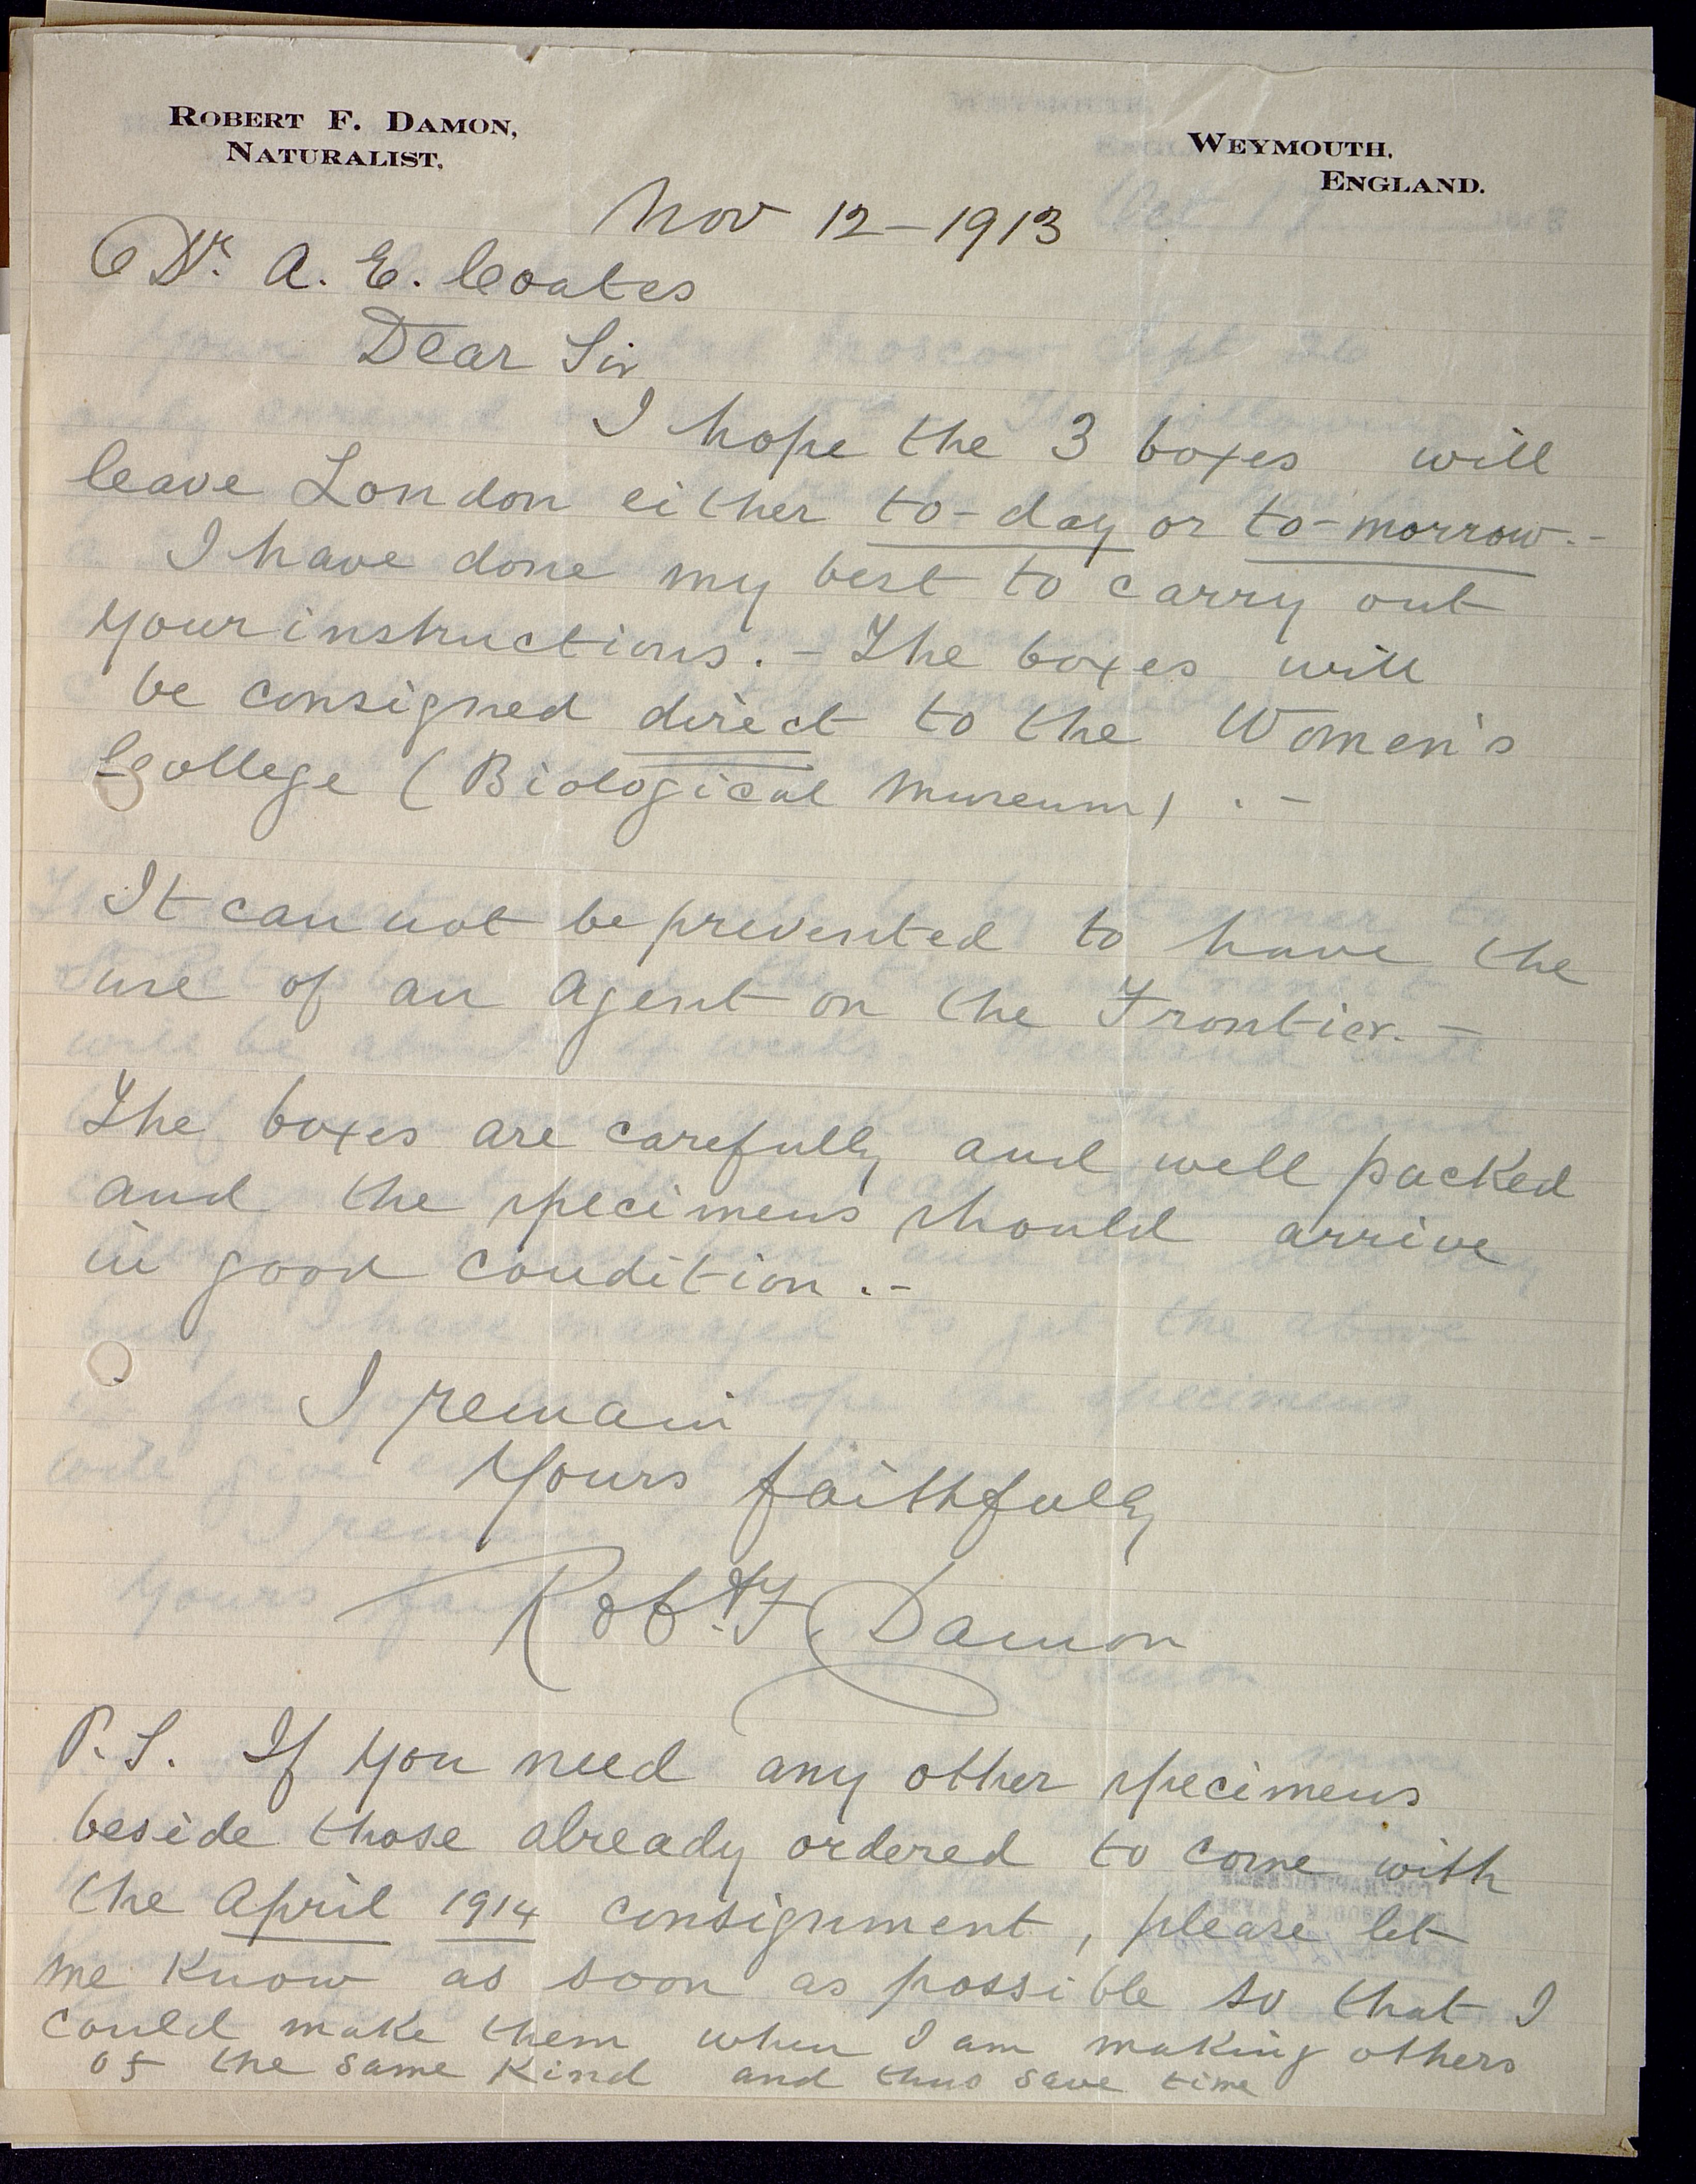 ROBERT F. DAMON,
NATURALIST,
WEYMOUTH,
ENGLAND.
Nov 12 – 1913
Dr. A. E. Coates
Dear Sir
I hope the 3 boxes will
leave London either to-day or to-morrow.–
I have done my best to carry out
your instructions. – The boxes will
be consigned direct to the Women's
College (Biological Museum) . –
It can not be prevented to have the
use of an agent on the Frontier. –
The boxes are carefully and well packed
and the specimens should arrive
in good condition . –
I remain
Yours faithfully
Robt. F Damon
P.S. If you need any other specimens
beside those already ordered to come with
the April 1914 consignment, please let
me know as soon as possible so that I
could make them when I am making others
of the same kind and thus save time